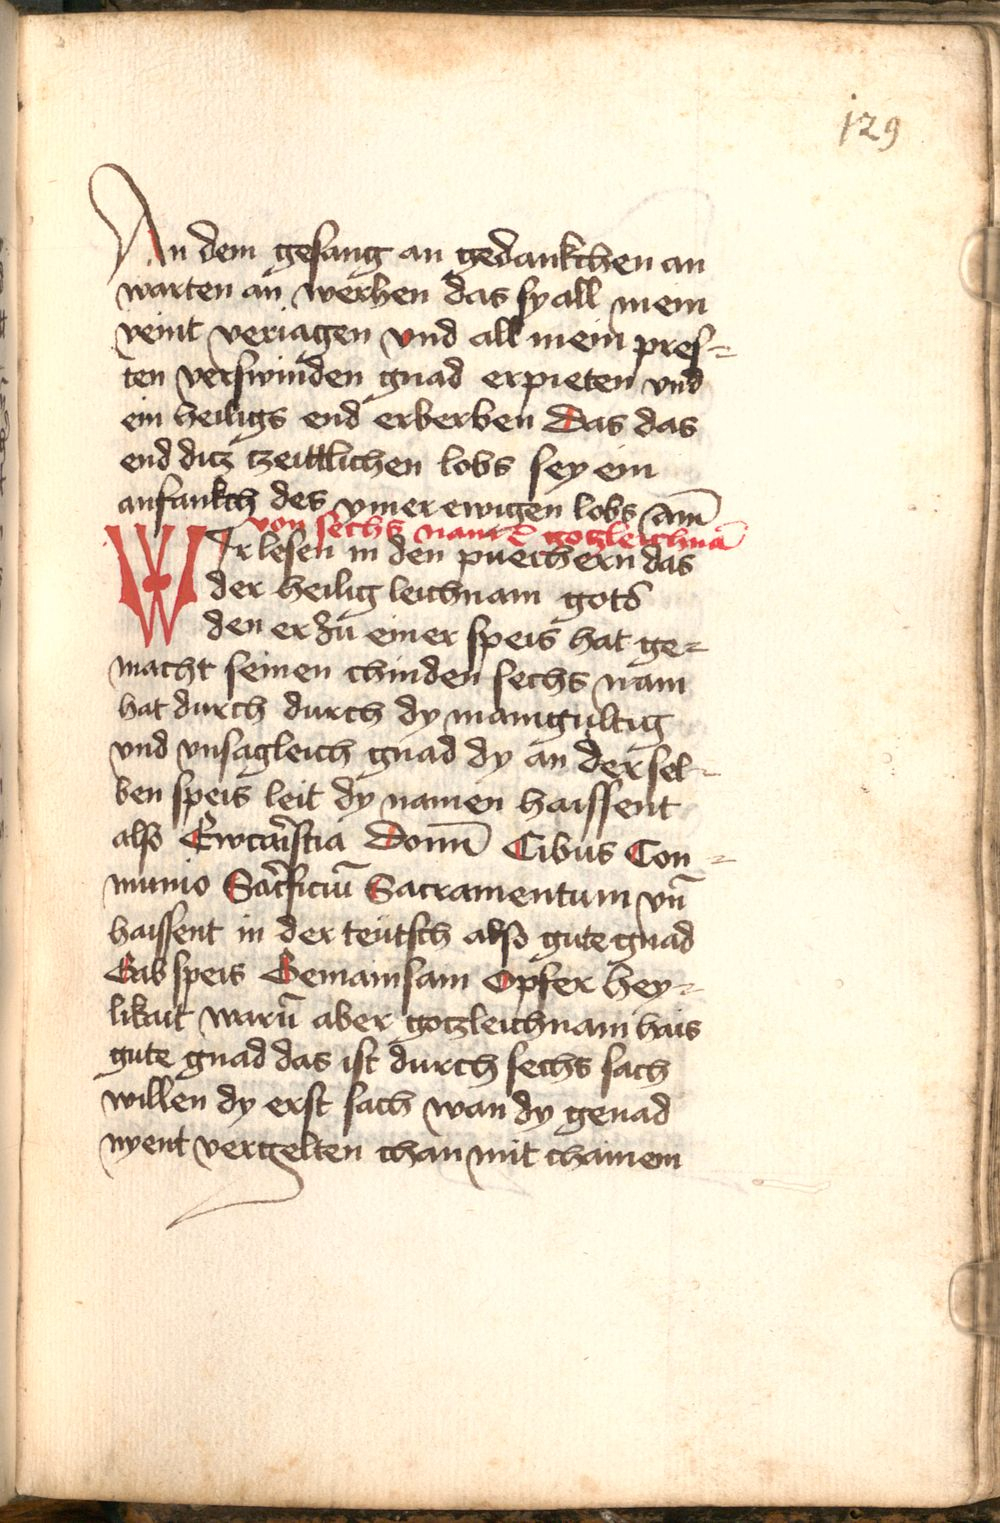 129
An dem gesang an gedankchen an
warten an werhen das sy all mein
veint veriagen vnd all mein pres-
ten verswinden gnad erpieten vnd
ein heiligs end erberben Das das
end ditz tzeittlichen lobs sey ein
anfankch des ymer ewigen lobs am̄
von sechs nam̄ gotzleichnā
WIr lesen in den puechern das
der heilig leichnam gots
den er zu einer speis hat ge-
macht seinen chinden sechs nam
hat durch durch dy manigultig
vnd vnsagleich gnad dy an der sel-
ben speis leit dy namen haissent
also Ewcaristia Donū Cibus Con-
munio Sacrficiū Sacramentum vn̄
haissent in der teutsch also gute gnad
Gab speis Gemainsam Opfer hey-
likait warū aber gotzleichnam hais
gute gnad das ist durch sechs sach
willen dy erst sach wan dy genad
nyent vergelten chan mit chainem